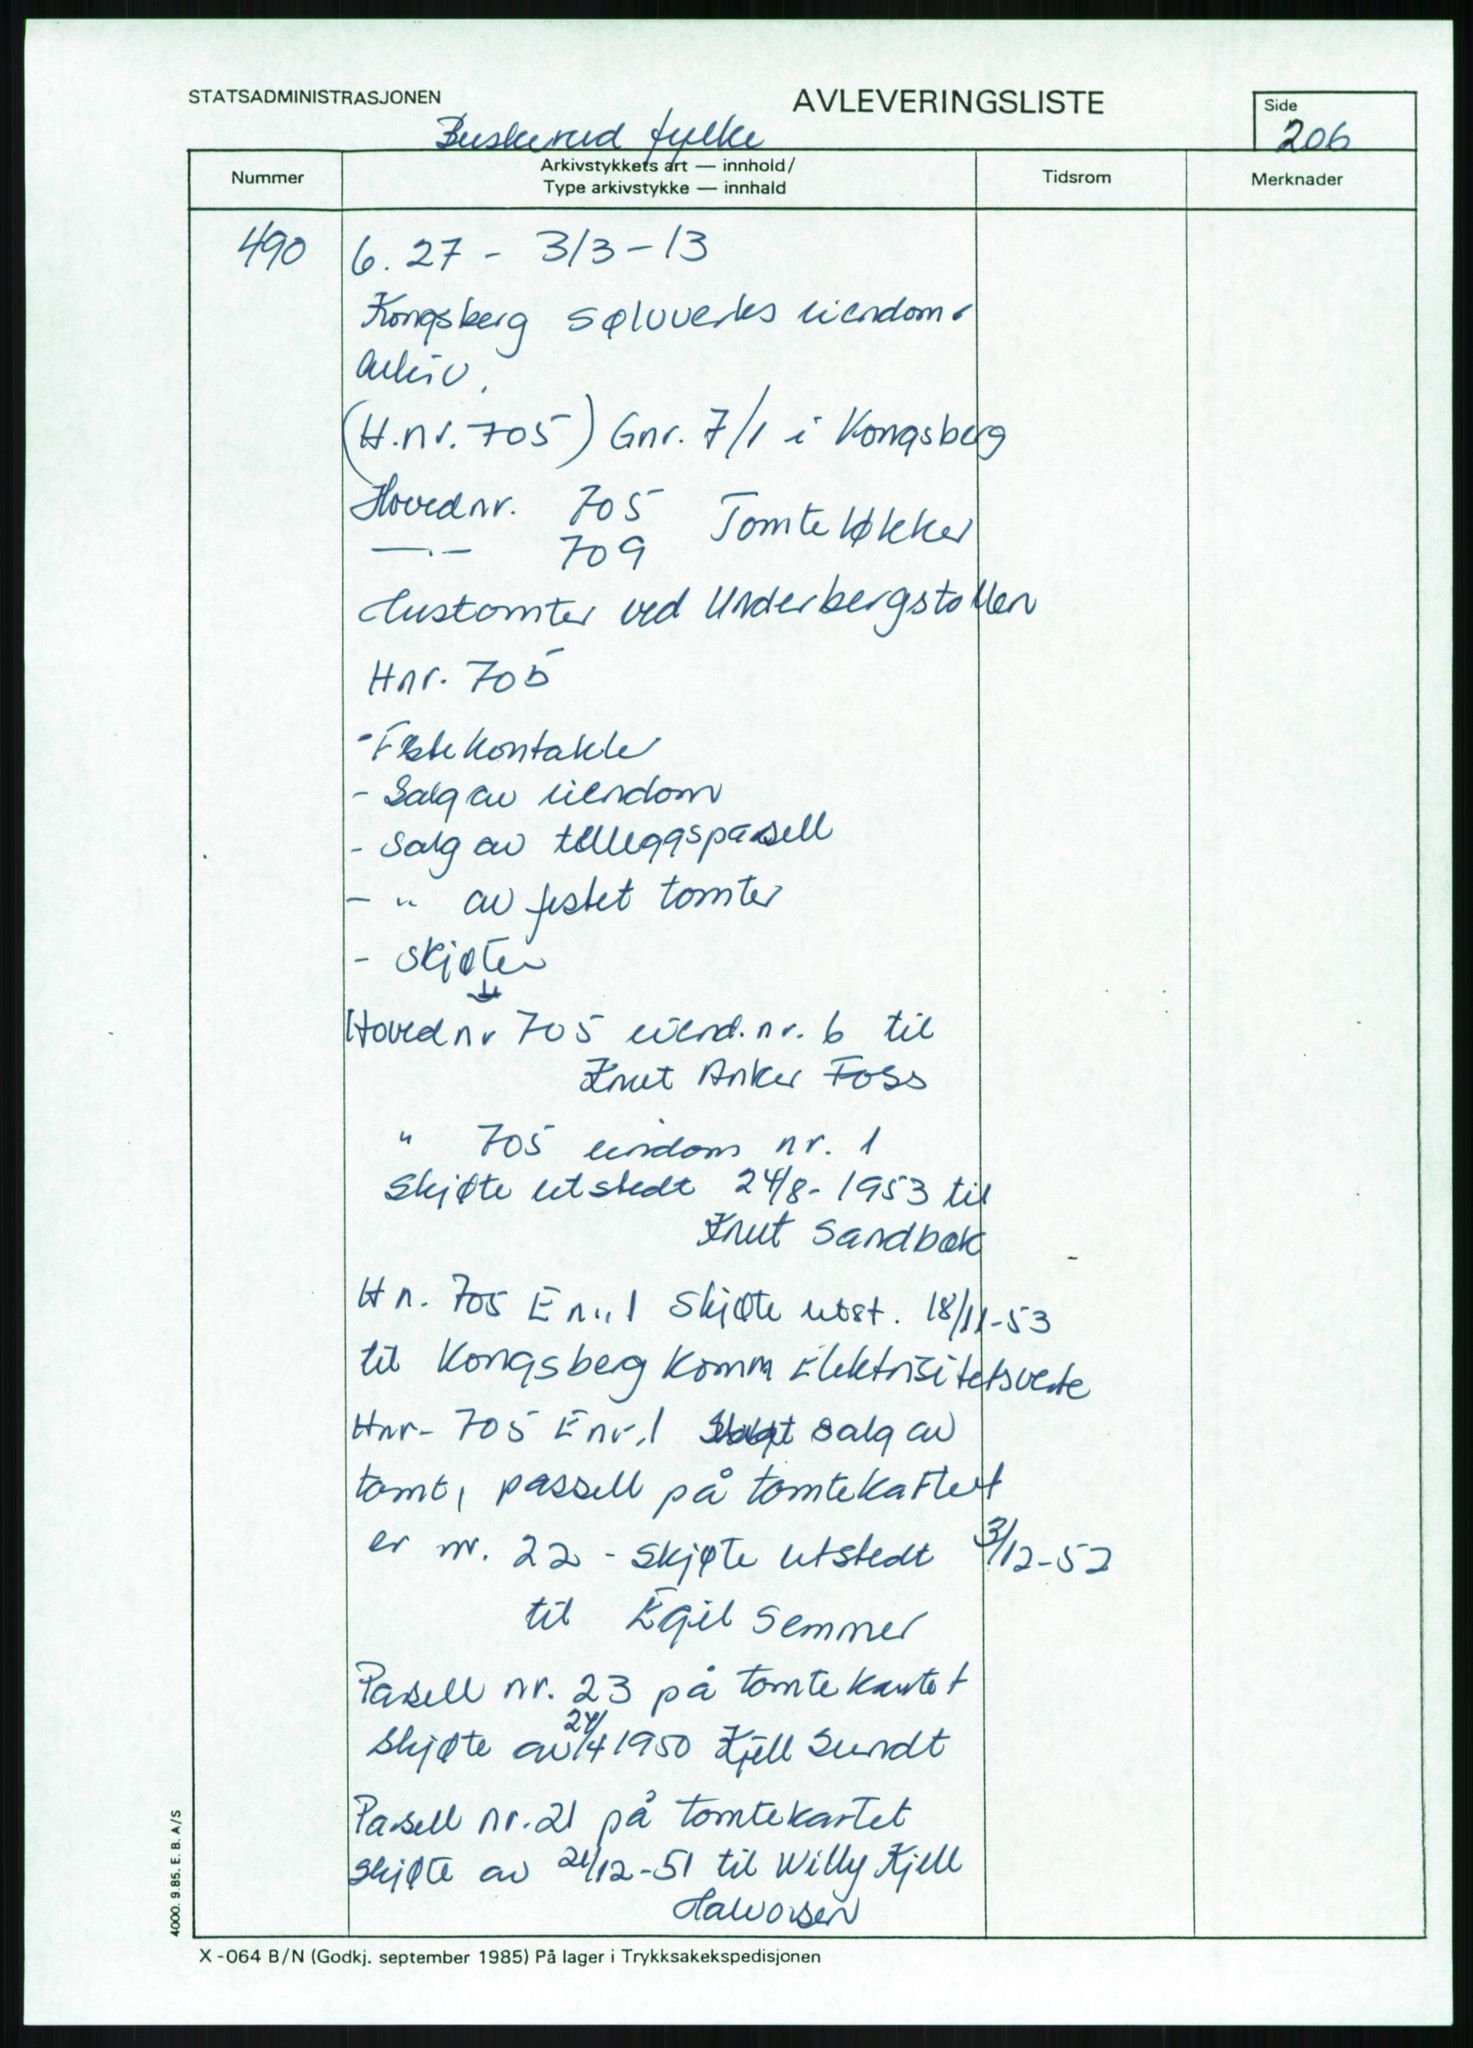 STATSADMINISTRASJONEN
AVLEVERINGSLISTE
Side
206
Buskerud fylke
Nummer
Arkivstykkets art — innhold/
Type arkivstykke — innhald
Tidsrom
Merknader
490
6. 27 - 3/3-13
Kongsberg sølvverks eiendoms
arkiv.
(H.nr. 705) Gnr. 7/1 i Kongsberg
Hovednr. 705 Tomteløkker
—·— 709
Hustomter ved Underbergstollen
Hnr. 705
- Festekontakter
- Salg av eiendom
- Salg av tilleggsparsell
- " av festet tomter
- Skjøter
Hovednr 705 eiend. nr. 6 til
Knut Anker Foss
" 705 eiendom nr. 1
Skjøte utstedt 24/8-1953 til
Knut Sandbæk
Hn. 705 E nr. 1 Skjøte utst. 18/11-53
til Kongsberg Komm Elektrisitetsverke
Hnr- 705 Enr. 1 salg av
tomt, passell på tomtekartet
er nr. 22 - Skjøte utstedt 3/12-52
til Egil Semmer
Parsell nr. 23 på tomtekartet
Skjøte av 24/4 1950 Kjell Sundt
Parsell nr. 21 på tomtekartet
Skjøte av 21/12-51 til Willy Kjell
Halvorsen
4000. 9.85. E. B. A/S
X-064 B/N (Godkj. september 1985) På lager i Trykksakekspedisjonen